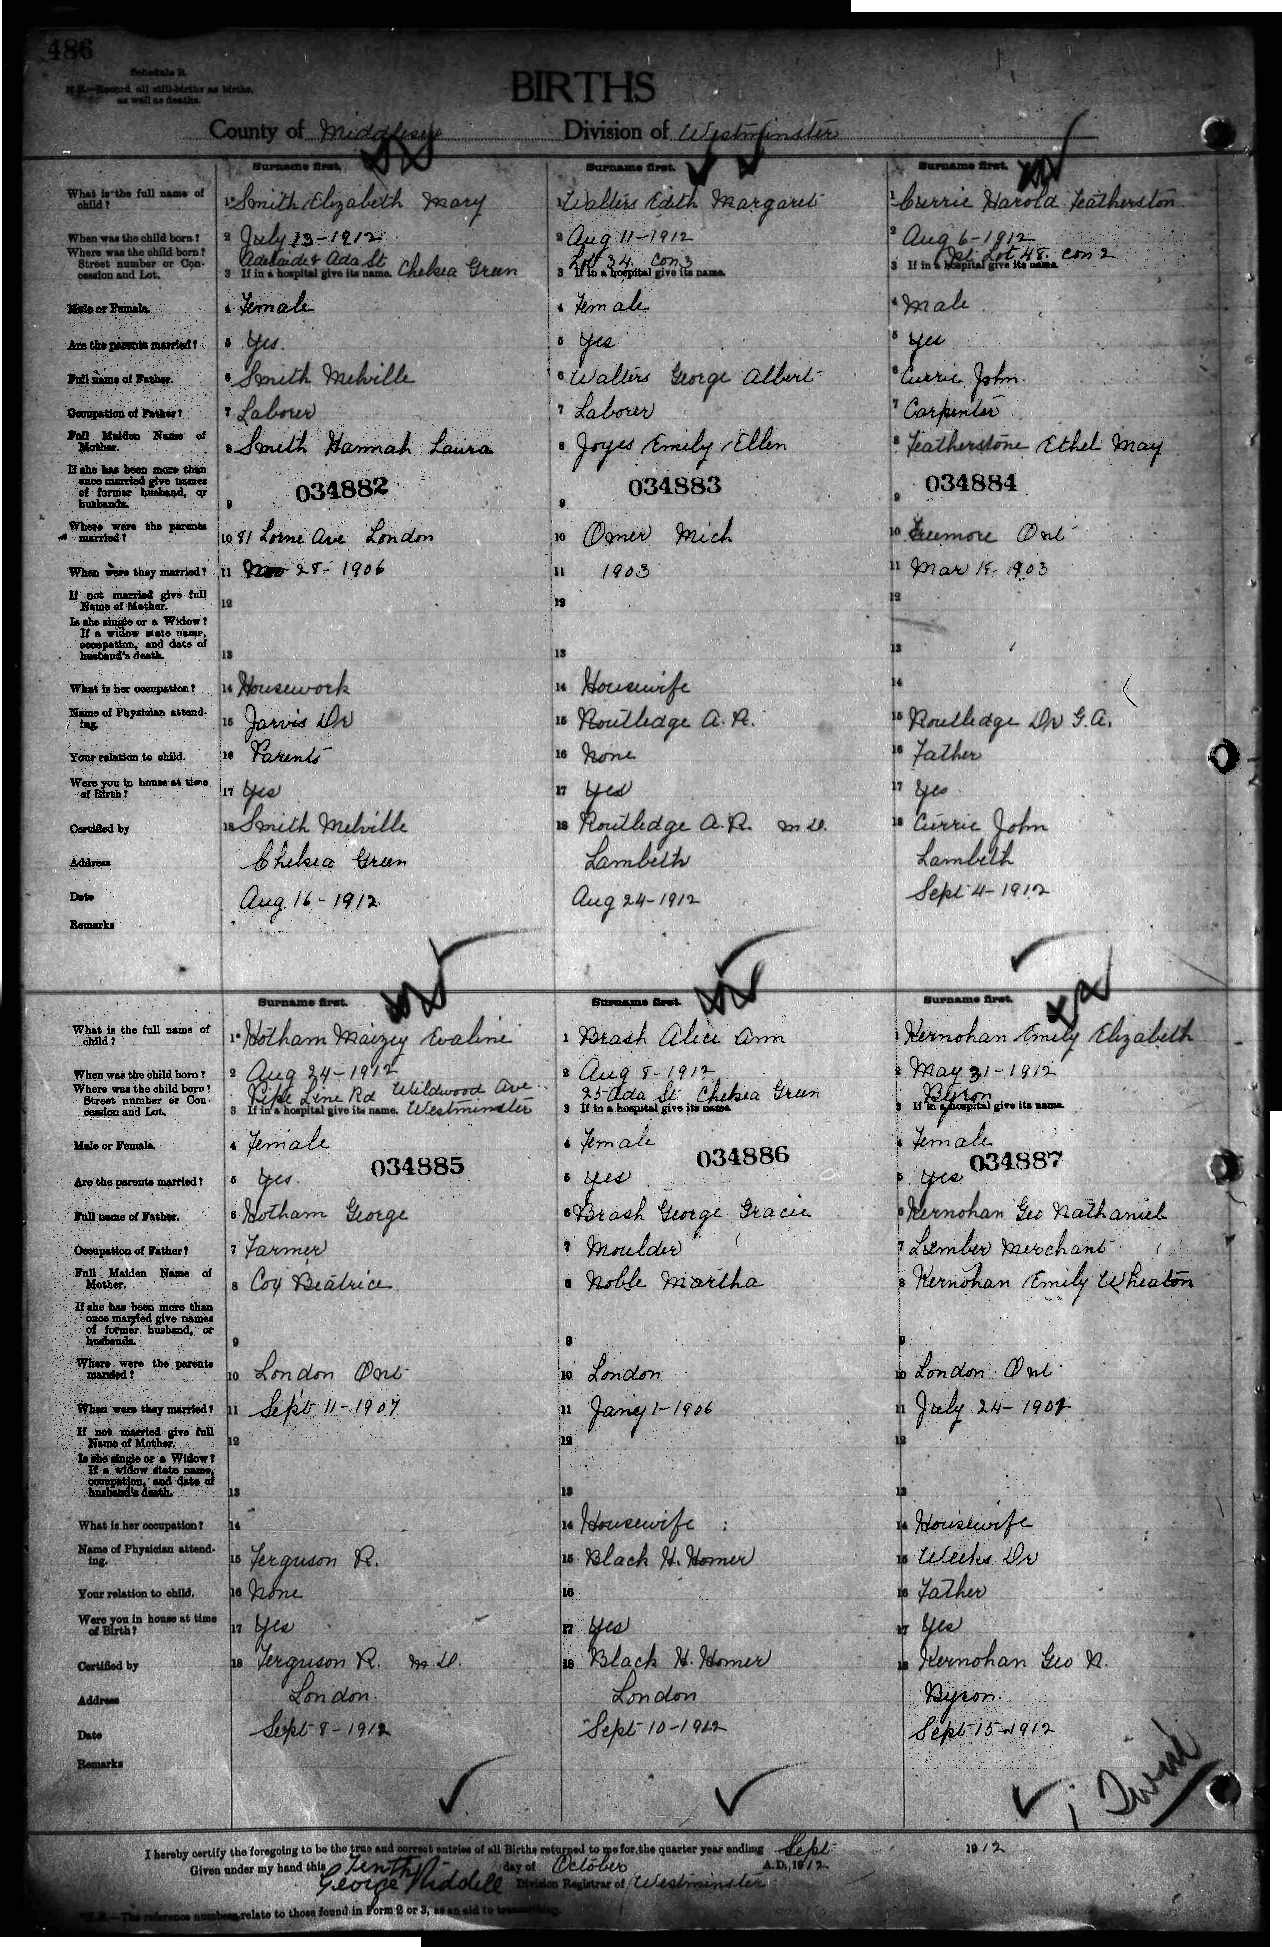 486
Schedule B.
N.B.—Record all still-births as births, as well as deaths.
BIRTHS
County of Middlesex Division of Westminster
Surname first. Surname first. Surname first.
What is the full name of child? 1 Smith Elizabeth Mary 1 Walters Edith Margaret 1 Currie Harold Featherston
When was the child born? 2 July 13-1912 2 Aug 11-1912 2 Aug 6-1912
Where was the child born? Adelaide & Ada St Lot 34. Con 3 Lot 48. Con 2
Street number or Concession and Lot. 3 If in a hospital give its name. Chelsea Green 3 If in a hospital give its name. 3 If in a hospital give its name.
Male or Female. 4 Female 4 Female 4 Male
Are the parents married? 5 Yes. 5 Yes 5 Yes
Full name of Father. 6 Smith Melville 6 Walters George Albert 6 Currie John
Occupation of Father? 7 Laborer 7 Laborer 7 Carpenter
Full Maiden Name of Mother. 8 Smith Hannah Laura 8 Joyes Emily Ellen 8 Featherstone Ethel May
If she has been more than once married give names of former husband, or husbands. 9 034882 9 034883 9 034884
Where were the parents married? 10 81 Lorne Ave London 10 Omer Mich 10 Creemore Ont
When were they married? 11 Nov 28-1906 11 1903 11 Mar 18 1903
If not married give full Name of Mother. 12 12 12
Is she single or a Widow? If a widow state name, occupation, and date of husband's death. 13 13 13
What is her occupation? 14 Housework 14 Housewife 14
Name of Physician attending. 15 Jarvis Dr 15 Routledge A. R. 15 Routledge Dr G.A.
Your relation to child. 16 Parents 16 None 16 Father
Were you in house at time of Birth? 17 Yes 17 Yes 17 Yes
Certified by 18 Smith Melville 18 Routledge A.R. M D. 18 Currie John
Address Chelsea Green Lambeth Lambeth
Date Aug 16-1912 Aug 24-1912 Sept 4-1912
Remarks
Surname first. Surname first. Surname first.
What is the full name of child? 1 Hotham Maizey Evaline 1 Brash Alice Ann 1 Kernohan Emily Elizabeth
When was the child born? 2 Aug 24-1912 2 Aug 8-1912 2 May 31-1912
Where was the child born? Pipe Line Rd Wildwood Ave 25 Ada St Chelsea Green Byron
Street number or Concession and Lot. 3 If in a hospital give its name. Westminster 3 If in a hospital give its name. 3 If in a hospital give its name.
Male or Female. 4 Female 4 Female 4 Female
034885 034886 034887
Are the parents married? 5 Yes. 5 Yes 5 Yes
Full name of Father. 6 Hotham George 6 Brash George Gracie 6 Kernohan Geo Nathaniel
Occupation of Father? 7 Farmer 7 Moulder 7 Lumber Merchant
Full Maiden Name of Mother. 8 Cox Beatrice 8 Noble Martha 8 Kernohan Emily Wheaton
If she has been more than once married give names of former husband, or husbands. 9 9 9
Where were the parents married? 10 London Ont 10 London 10 London Ont
When were they married? 11 Sept 11-1907 11 Jany 1-1906 11 July 24-1907
If not married give full Name of Mother. 12 12 12
Is she single or a Widow? If a widow state name, occupation, and date of husband's death. 13 13 13
What is her occupation? 14 14 Housewife 14 Housewife
Name of Physician attending. 15 Ferguson R. 15 Black H. Homer 15 Weeks Dr
Your relation to child. 16 None 16 16 Father
Were you in house at time of Birth? 17 Yes 17 Yes 17 Yes
Certified by 18 Ferguson R. M D. 18 Black H. Homer 18 Kernohan Geo N.
Address London. London Byron.
Date Sept 8-1912 Sept 10-1912 Sept 15-1912
Remarks
I hereby certify the foregoing to be the true and correct entries of all Births returned to me for the quarter year ending Sept 1912
Given under my hand this Tenth day of October A.D. 1912.
George Riddell Division Registrar of Westminster
N.B.—The reference numbers relate to those found in Form 2 or 3, as an aid to transcribing.